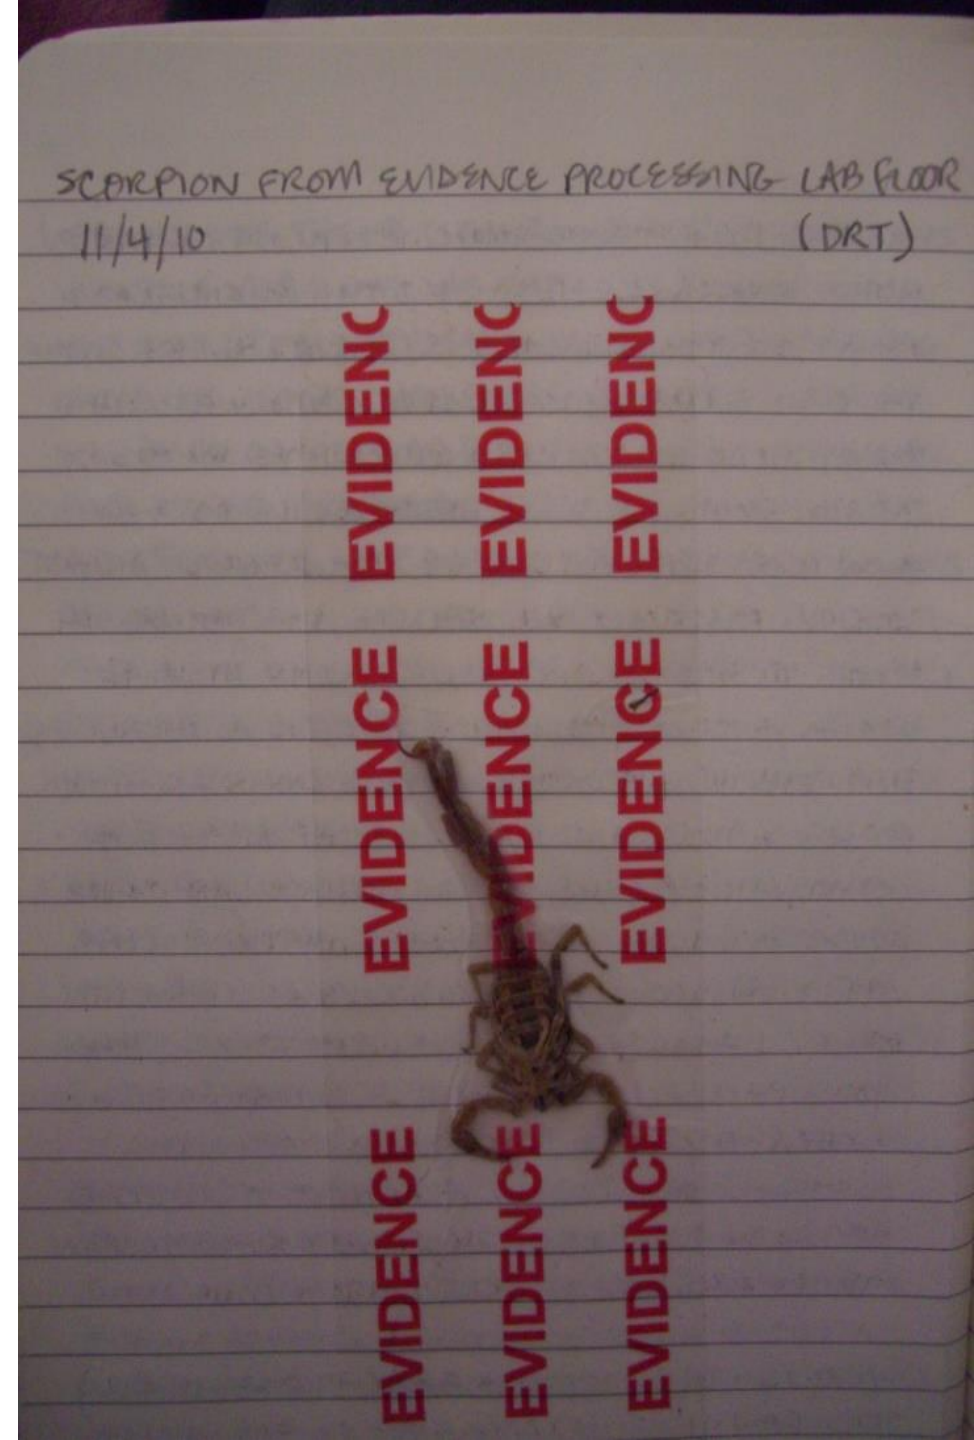 SCORPION FROM EVIDENCE PROCESSING LAB FLOOR
11/4/10 (DRT)
EVIDENC EVIDENC EVIDENC
EVIDENCE EVIDENCE EVIDENCE
EVIDENCE EVIDENCE EVIDENCE